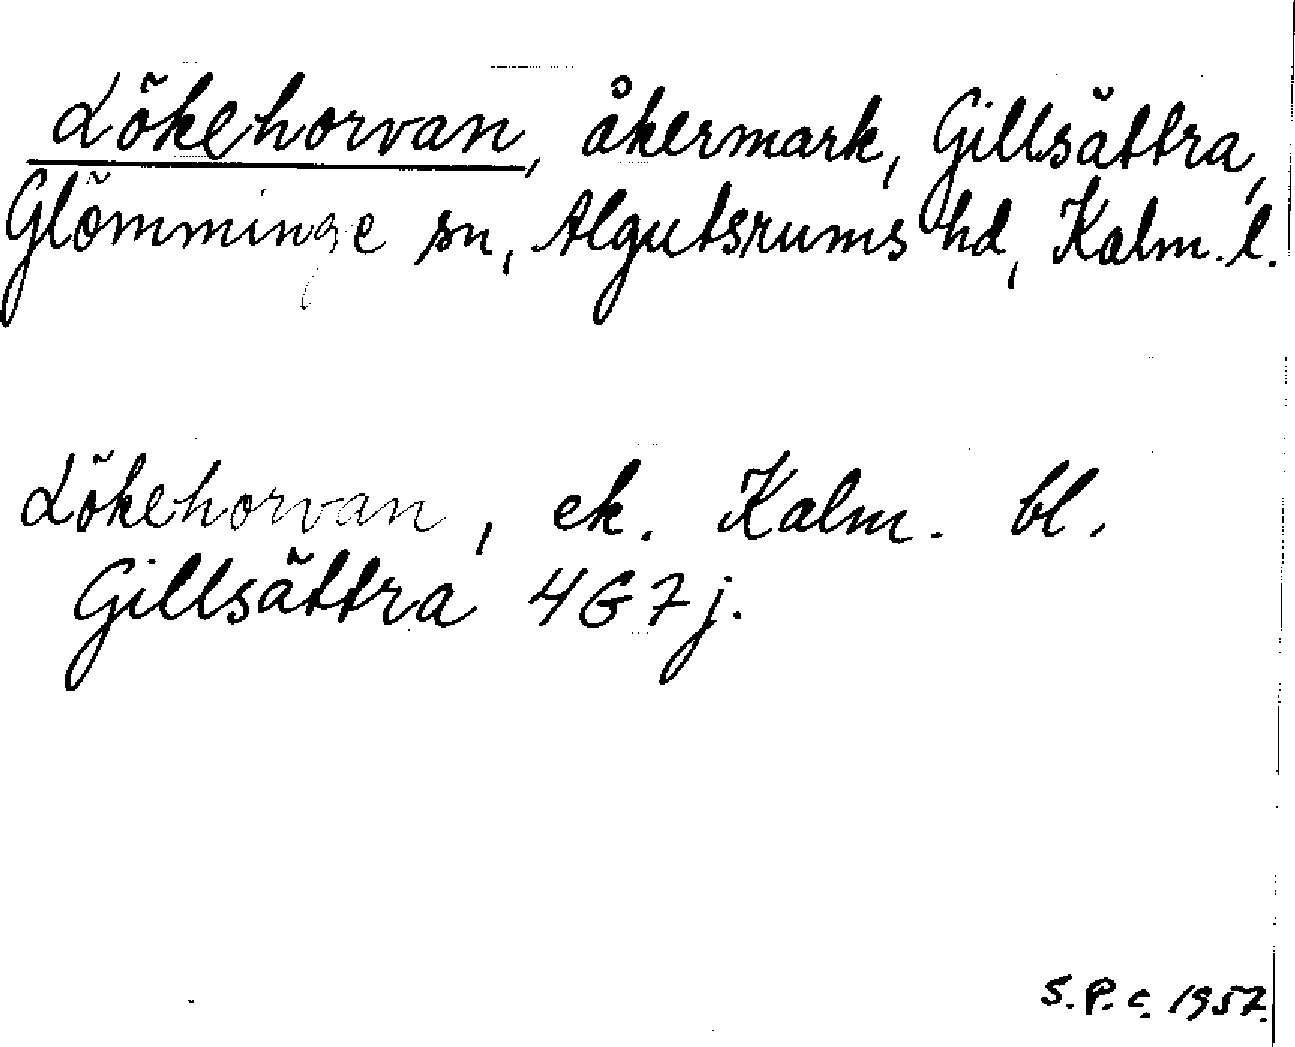 Lökehorvan, åkermark, Gillsättra,
Glömminge sn, Algutsrums hd, Kalm. l.
Lökehorvan, ek. Kalm. bl.
Gillsättra 4G7j.
S.P.c. 1957.